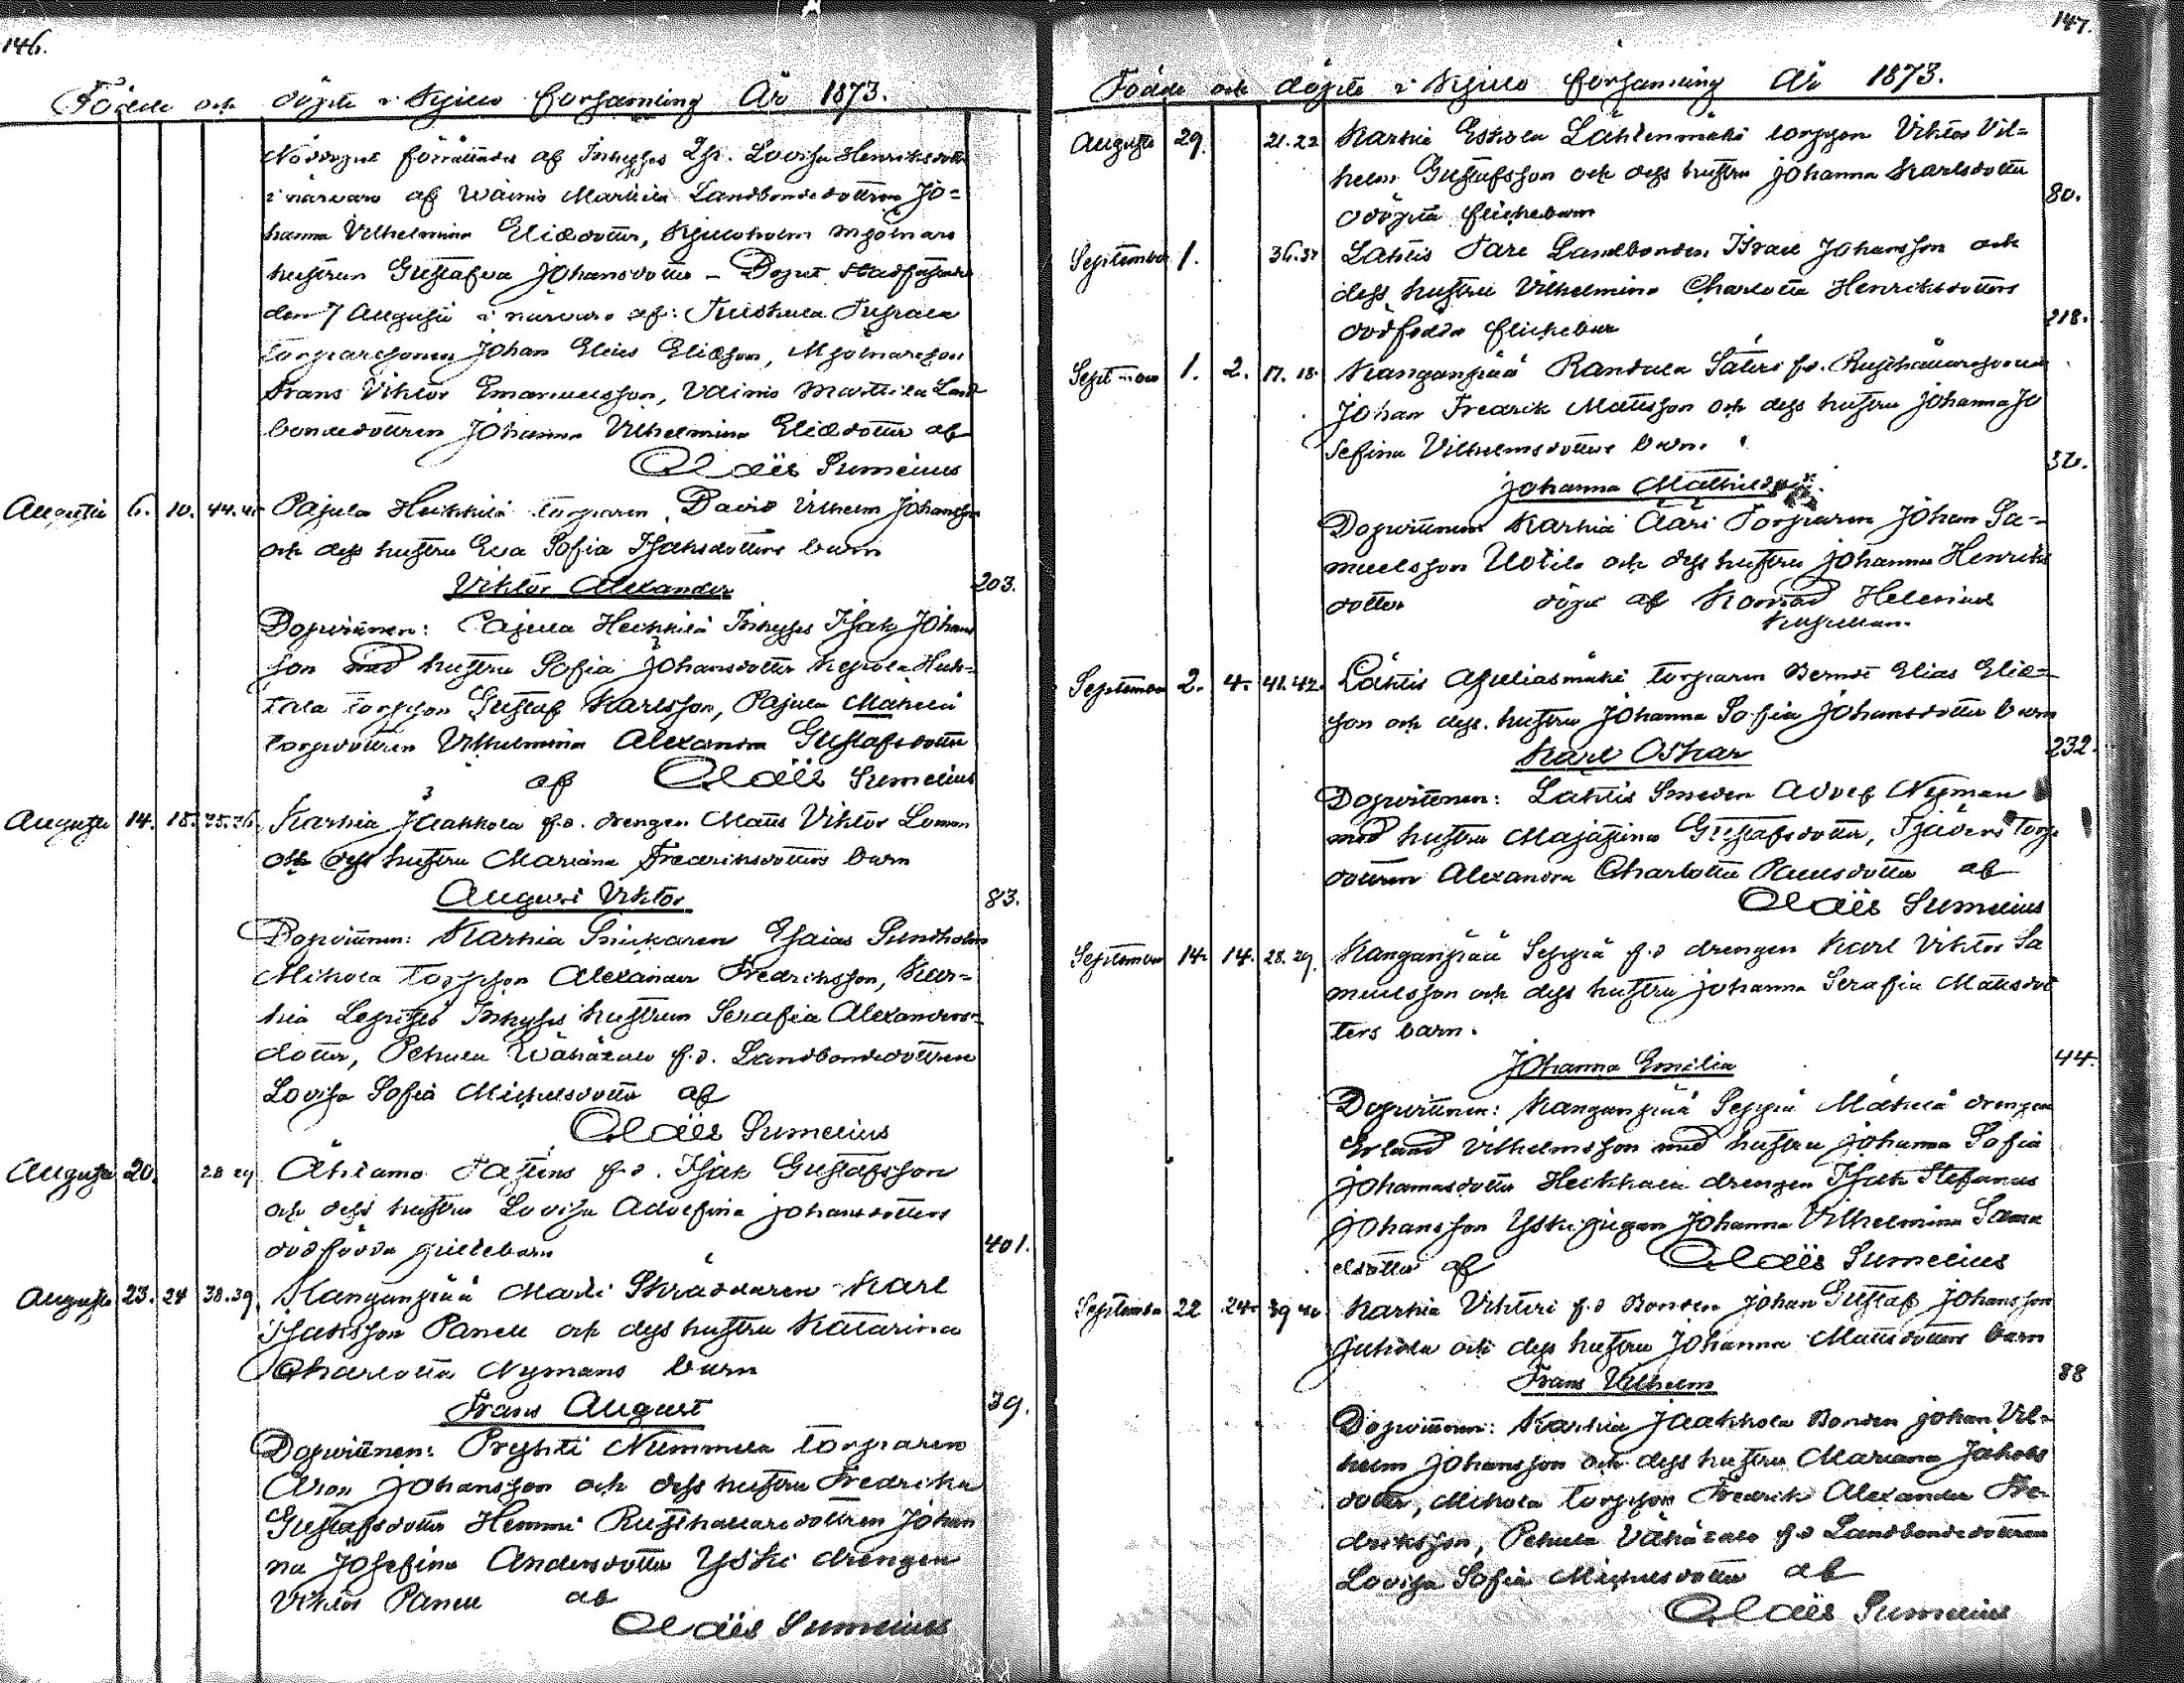 146.
Födde och döpte i Kjulo församling År 1873.
Nöddopet förrättades af Inhyses Lovisa Henriksdotter
i närvaro af Wäinio Marttila Landbondedottren Jo=
hanna Vilhelmina Eliædotter, Kjuloholm mjölnare
hustrun Gustafva Johansdotter – Dopet stadfästades
den 7 Augusti i närvaro af:
torparesonen Johan Elias Eliæson, Mjölnareson
Frans Viktor Emanuelsson, Väinio Marttila Land
bondedottren Johanna Vilhelmina Eliædotter af
Claës Sumelius
Augusti 6. 10. 44.45 Pajula Heikkilä torparen David Vilhelm Johansson
och dess hustru Eva Sofia Isaksdotters barn
Viktor Alexander
203.
Dopvittnen: Pajula Heikkilä Inhyses Isak Johans
son med hustru Sofia Johansdotter Kepola Huh=
tala torpson Gustaf Karlsson, Pajula Mäkelä
torpdottren Vilhelmina Alexandra Gustafsdotter
af Claës Sumelius
Augusti 14. 15. 35.36. Karhia Jaakkola f.d. drengen Matts Viktor Loman
och dess hustru Mariana Fredriksdotters barn
August Viktor
83.
Dopvittnen: Karhia Snickaren Esaias Sundholm
Mikola torpson Alexander Fredriksson, Kar=
hia Inhyses hustrun Serafia Alexanders=
dotter, Pehula Wähätalo f.d. Landbondedottren
Lovisa Sofia Michelsdotter af
Claës Sumelius
Augusti 20. 28 29 f.d. Isak Gustafsson
och dess hustru Lovisa Adolfina Johansdotters
dödfödda gossebarn
401.
Augusti 23. 24 38.39. Kanganpää Skräddaren Karl
Isaksson Paneli och dess hustru Katarina
Charlotta Nymans barn
Frans August
39.
Dopvittnen: Nummela torparen
Aron Johansson och dess hustru Fredrika
Gustafsdotter Hemmi Rusthållaredottren Johan
na Josefina Andersdotter Yski drengen
Viktor Paneli af
Claës Sumelius
147.
Födde och döpte i Kjulo församling År 1873.
Augusti 29. 21.22 Karhia Eskola Lähtenmäki torpson Viktor Vil=
helm Gustafsson och dess hustru Johanna Karlsdotter
odöpta flickebarn
80.
September 1. 36.37 Lähtis Tare Landbonden Israel Johansson och
dess hustru Vilhelmina Charlotta Henriksdotters
dödfödda flickebarn
218.
September 1. 2. 17. 18. Kanganpää Randala Säteri f.d. Rusthållaresonen
Johan Fredrik Mattsson och dess hustru Johanna Jo
sefina Vilhelmsdotters barn.
Johanna Mathilda
32.
Dopvittnen Karhia Ääri Torparen Johan Sa=
muelsson Uotila och dess hustru Johanna Henriks
dotter döpt af Konrad Helenius
September 2. 4. 41.42. Lähtis torparen Berndt Elias Eliæ=
son och dess hustru Johanna Sofia Johansdotter barn
Karl Oskar
232.
Dopvittnen: Lähtis Smeden Adolf Nyman
med hustru Majastina Gustafsdotter, torp
dottren Alexandra Charlotta Paulsdotter af
Claës Sumelius
September 14. 14. 28.29. Kanganpää Seppä f.d drengen Karl Viktor Sa
muelsson och dess hustru Johanna Serafia Mattsdot
ters barn.
Johanna Emilia
44.
Dopvittnen: Kanganpää Seppä Mäkelä drengen
Erland Vilhelmsson med hustru Johanna Sofia
Johannasdotter Heikkala drengen Isak Stefanus
Johansson Yski pigan Johanna Vilhelmina Samu
elsdotter af Claës Sumelius
September 22 24. 39 40 Karhia Vihteri f.d Bonden Johan Gustaf Johansson
Juhola och dess hustru Johanna Mattsdotters barn
Frans Vilhelm
88
Dopvittnen: Karhia Jaakkola Bonden Johan Vil=
helm Johansson och dess hustru Mariana Jakobs
dotter, Mikola torpson Fredrik Alexander Fre-
driksson, Pehula Vähätalo f.d Landbondedottren
Lovisa Sofia Michelsdotter af
Claës Sumelius